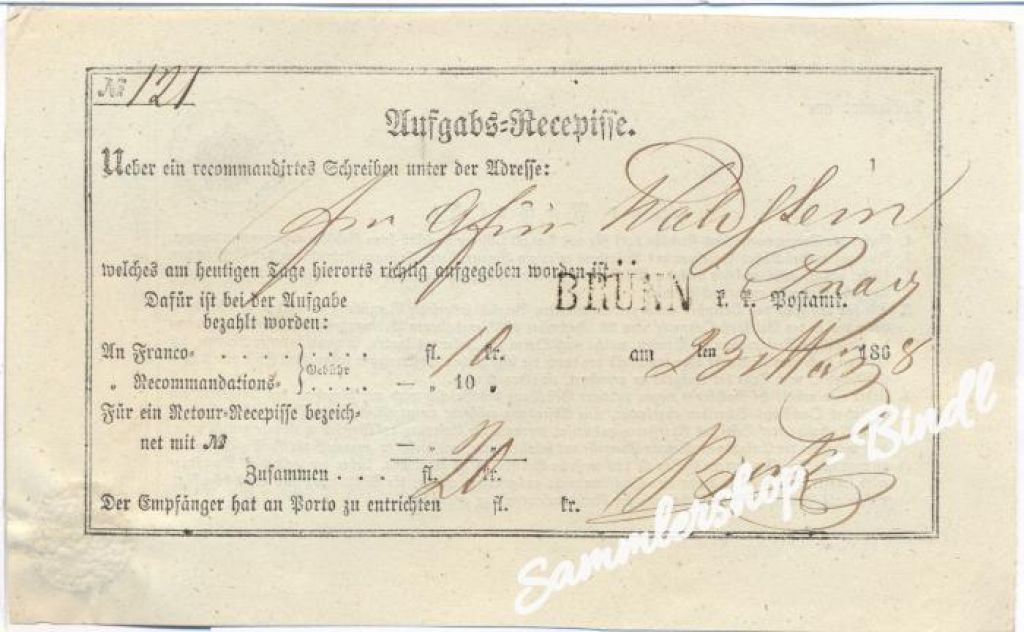 № 121
Aufgabs-Recepisse.
Ueber ein recommandirtes Schreiben unter der Adresse: 1
An Gfin Waldstein
welches am heutigen Tage hierorts richtig aufgegeben worden ist.
Dafür ist bei der Aufgabe BRÜNN k. k. Postamt.
bezahlt worden:
An Franco- . . . . . . . . . fl. 10 kr. am 23 ten März 1868
„ Recommandations- Gebühr . . . . — „ 10 „
Für ein Retour-Recepisse bezeich-
net mit № — „ „
Zusammen . . . fl. 20 kr.
Der Empfänger hat an Porto zu entrichten fl. kr.
Sammlershop - Bindl